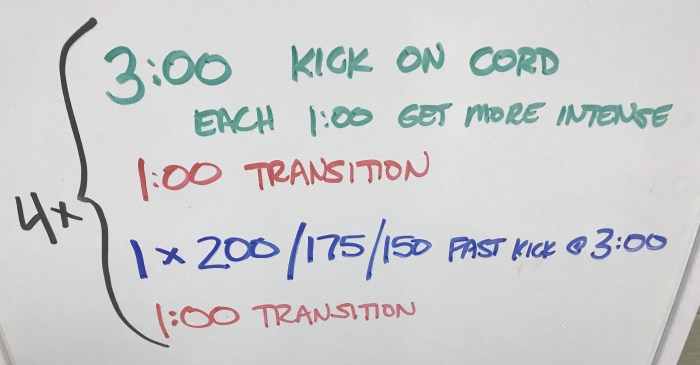 4x
3:00 KICK ON CORD
EACH 1:00 GET MORE INTENSE
1:00 TRANSITION
1 x 200/175/150 FAST KICK @ 3:00
1:00 TRANSITION